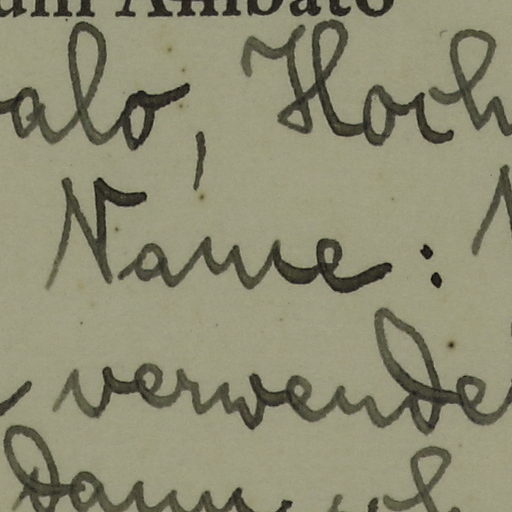 um Ambato
alo, Hoch
Name:
verwende
dann